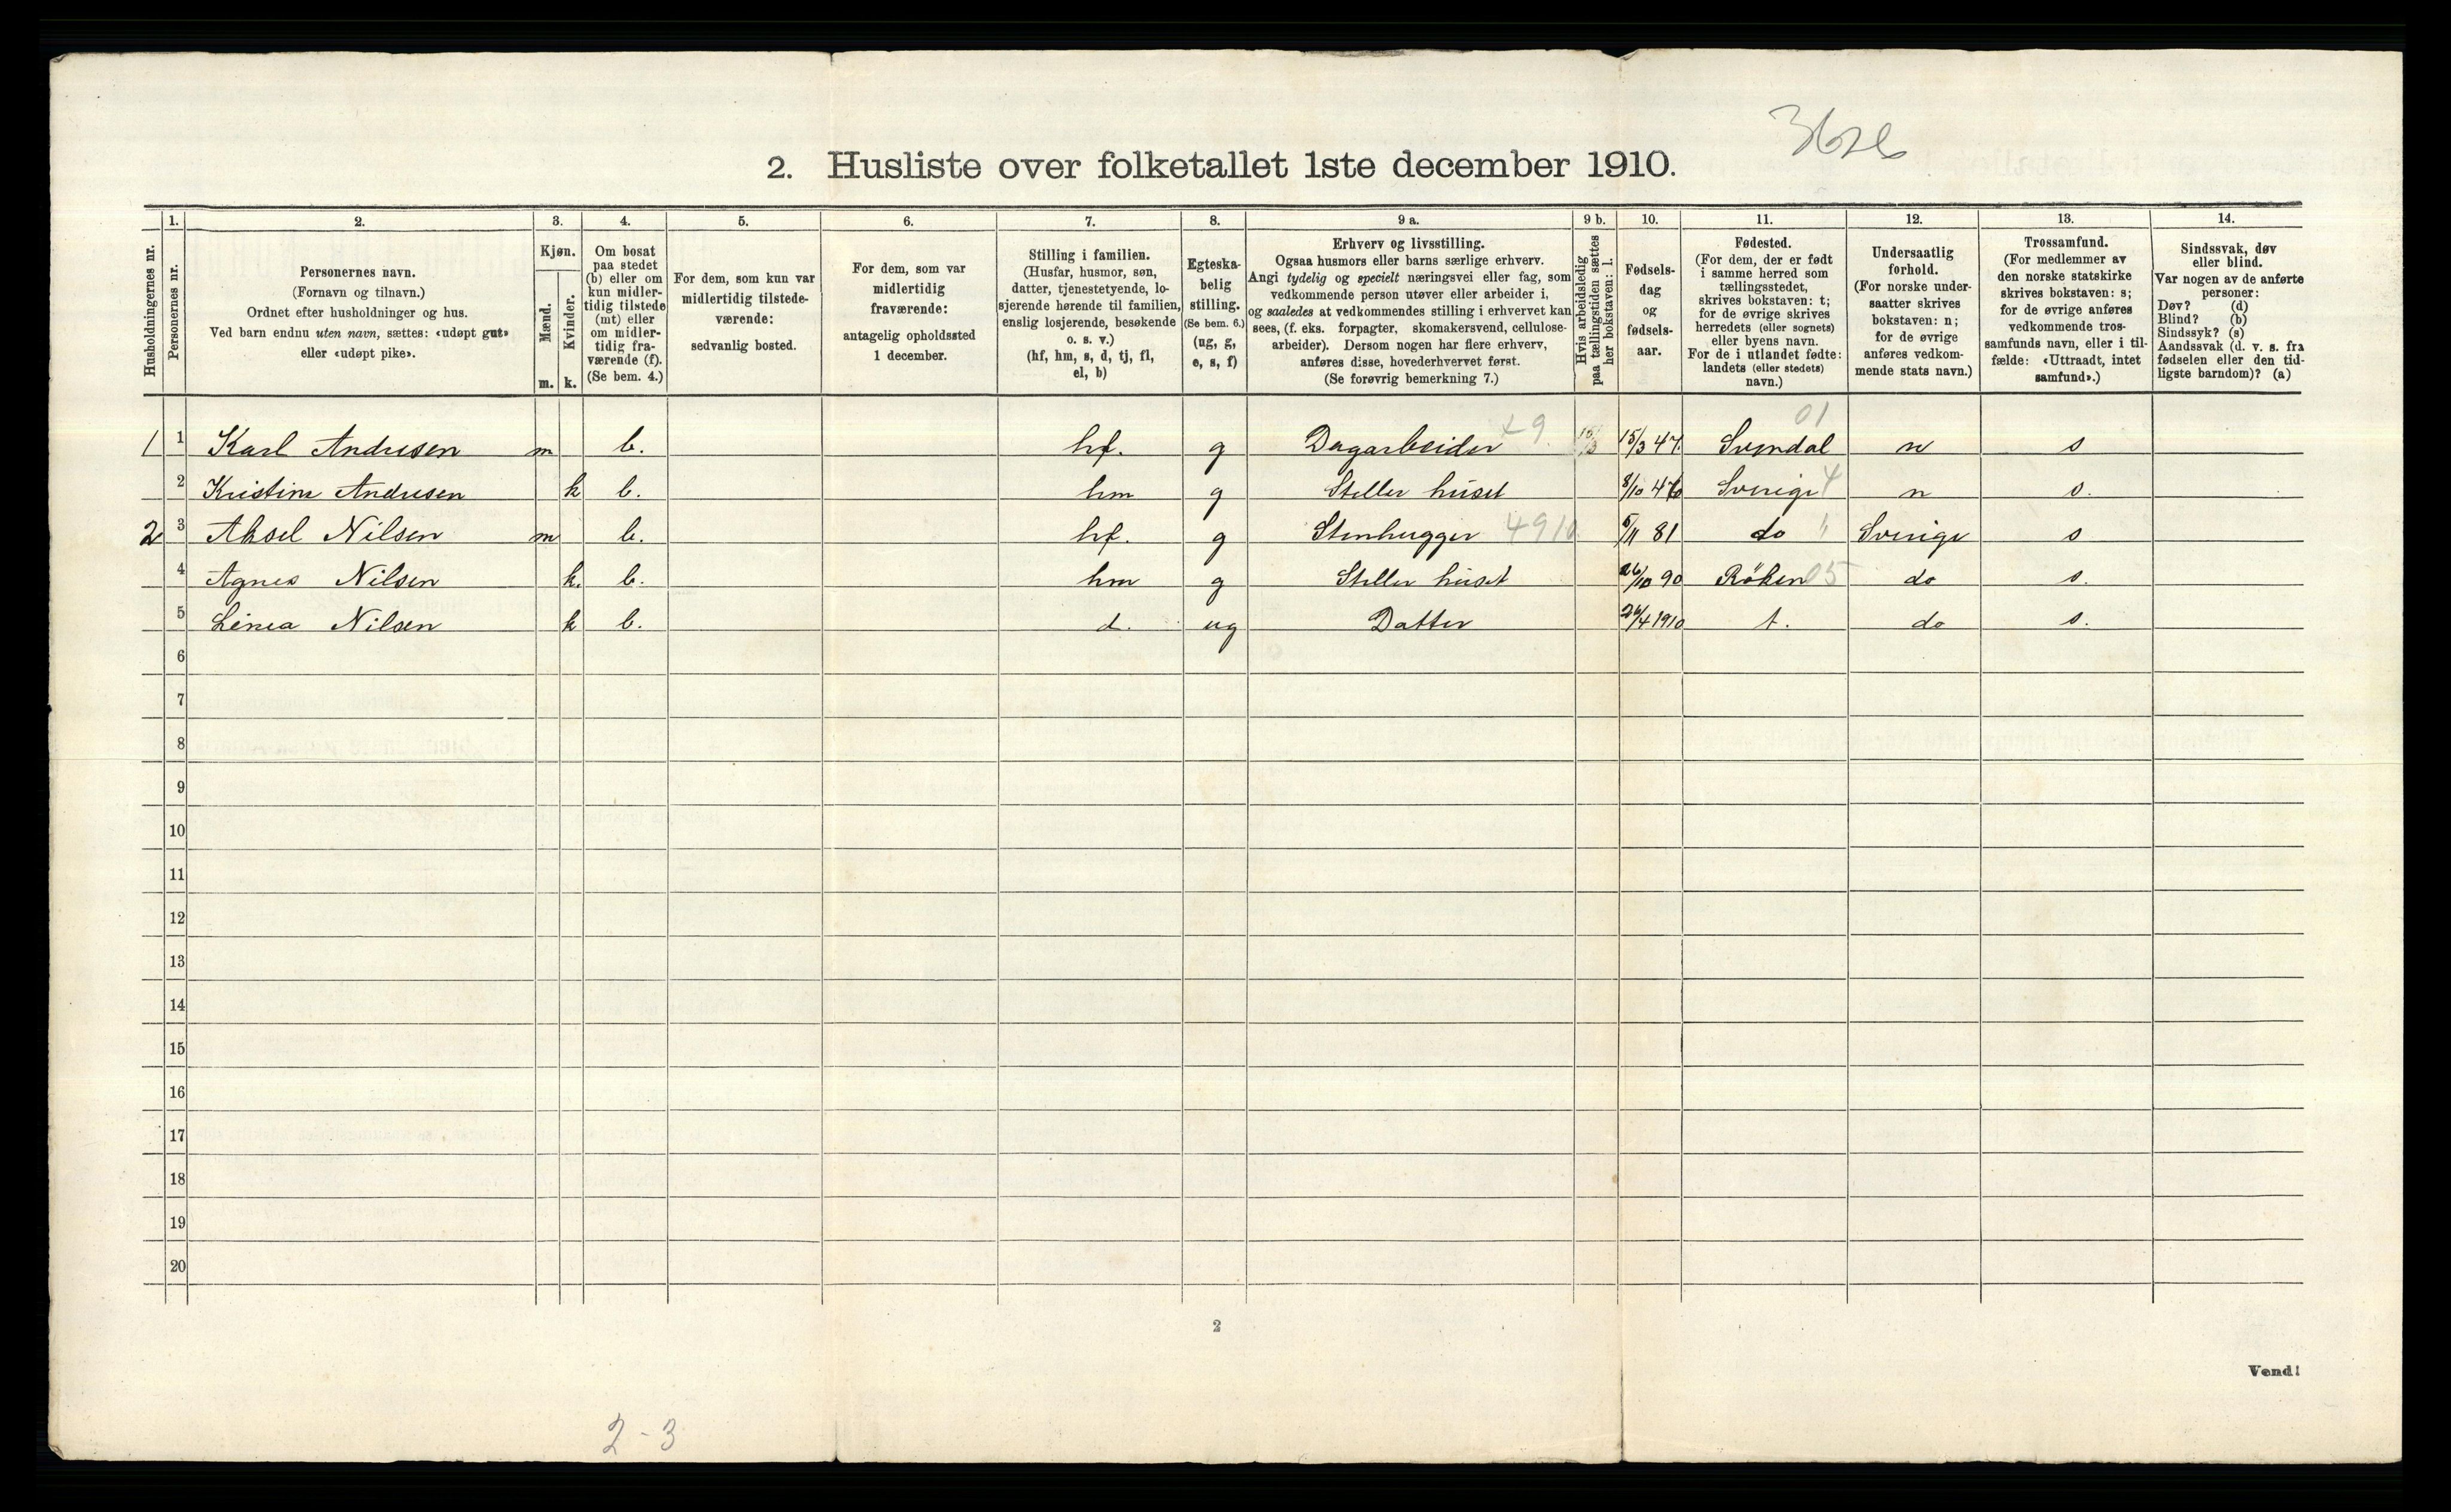 3626
2. Husliste over folketallet 1ste december 1910.
Husholdningernes nr.
1.
Personernes nr.
2.
Personernes navn.
(Fornavn og tilnavn.)
Ordnet efter husholdninger og hus.
Ved barn endnu uten navn, sættes: «udøpt gut»
eller «udøpt pike».
3.
Kjøn.
Mænd.
m.
Kvinder.
k.
4.
Om bosat
paa stedet
(b) eller om
kun midler-
tidig tilstede
(mt) eller
om midler-
tidig fra-
værende (f).
(Se bem. 4.)
5.
For dem, som kun var
midlertidig tilstede-
værende:
sedvanlig bosted.
6.
For dem, som var
midlertidig
fraværende:
antagelig opholdssted
1 december.
7.
Stilling i familien.
(Husfar, husmor, søn,
datter, tjenestetyende, lo-
sjerende hørende til familien,
enslig losjerende, besøkende
o. s. v.)
(hf, hm, s, d, tj, fl,
el, b)
8.
Egteska-
belig
stilling.
(Se bem. 6.)
(ug, g,
e, s, f)
9 a.
Erhverv og livsstilling.
Ogsaa husmors eller barns særlige erhverv.
Angi tydelig og specielt næringsvei eller fag, som
vedkommende person utøver eller arbeider i,
og saaledes at vedkommendes stilling i erhvervet kan
sees, (f. eks. forpagter, skomakersvend, cellulose-
arbeider). Dersom nogen har flere erhverv,
anføres disse, hovederhvervet først.
(Se forøvrig bemerkning 7.)
9 b.
Hvis arbeidsledig
paa tællingstiden sættes
her bokstaven: l.
10.
Fødsels-
dag
og
fødsels-
aar.
11.
Fødested.
(For dem, der er født
i samme herred som
tællingsstedet,
skrives bokstaven: t;
for de øvrige skrives
herredets (eller sognets)
eller byens navn.
For de i utlandet fødte:
landets (eller stedets)
navn.)
12.
Undersaatlig
førhold.
(For norske under-
saatter skrives
bokstaven: n;
for de øvrige
anføres vedkom-
mende stats navn.)
13.
Trossamfund.
(For medlemmer av
den norske statskirke
skrives bokstaven: s;
for de øvrige anføres
vedkommende tros-
samfunds navn, eller i til-
fælde: «Uttraadt, intet
samfund».)
14.
Sindssvak, døv
eller blind.
Var nogen av de anførte
personer:
Døv? (d)
Blind? (b)
Sindssyk? (s)
Aandssvak (d. v. s. fra
fødselen eller den tid-
ligste barndom)? (a)
01
1 1 Karl Andresen m b. hf. g Dagarbeider 49 15/3 47. Svendal n s
2 Kristine Andresen k b. hm g Steller huset 8/10 Sverige 4 n s.
2 3 Aksel Nilsen m b. hf. g Stenhugger 4910 5/11 81 do " Sverige s
4 Agnes Nilsen k. b. hm g Steller huset 26/10 90 Röken 05 do s.
5 Linea Nilsen k b. d. ug Datter 24/4 1910 t. do s.
6
7
8
9
10
11
12
13
14
15
16
17
18
19
20
2
Vend!
2-3